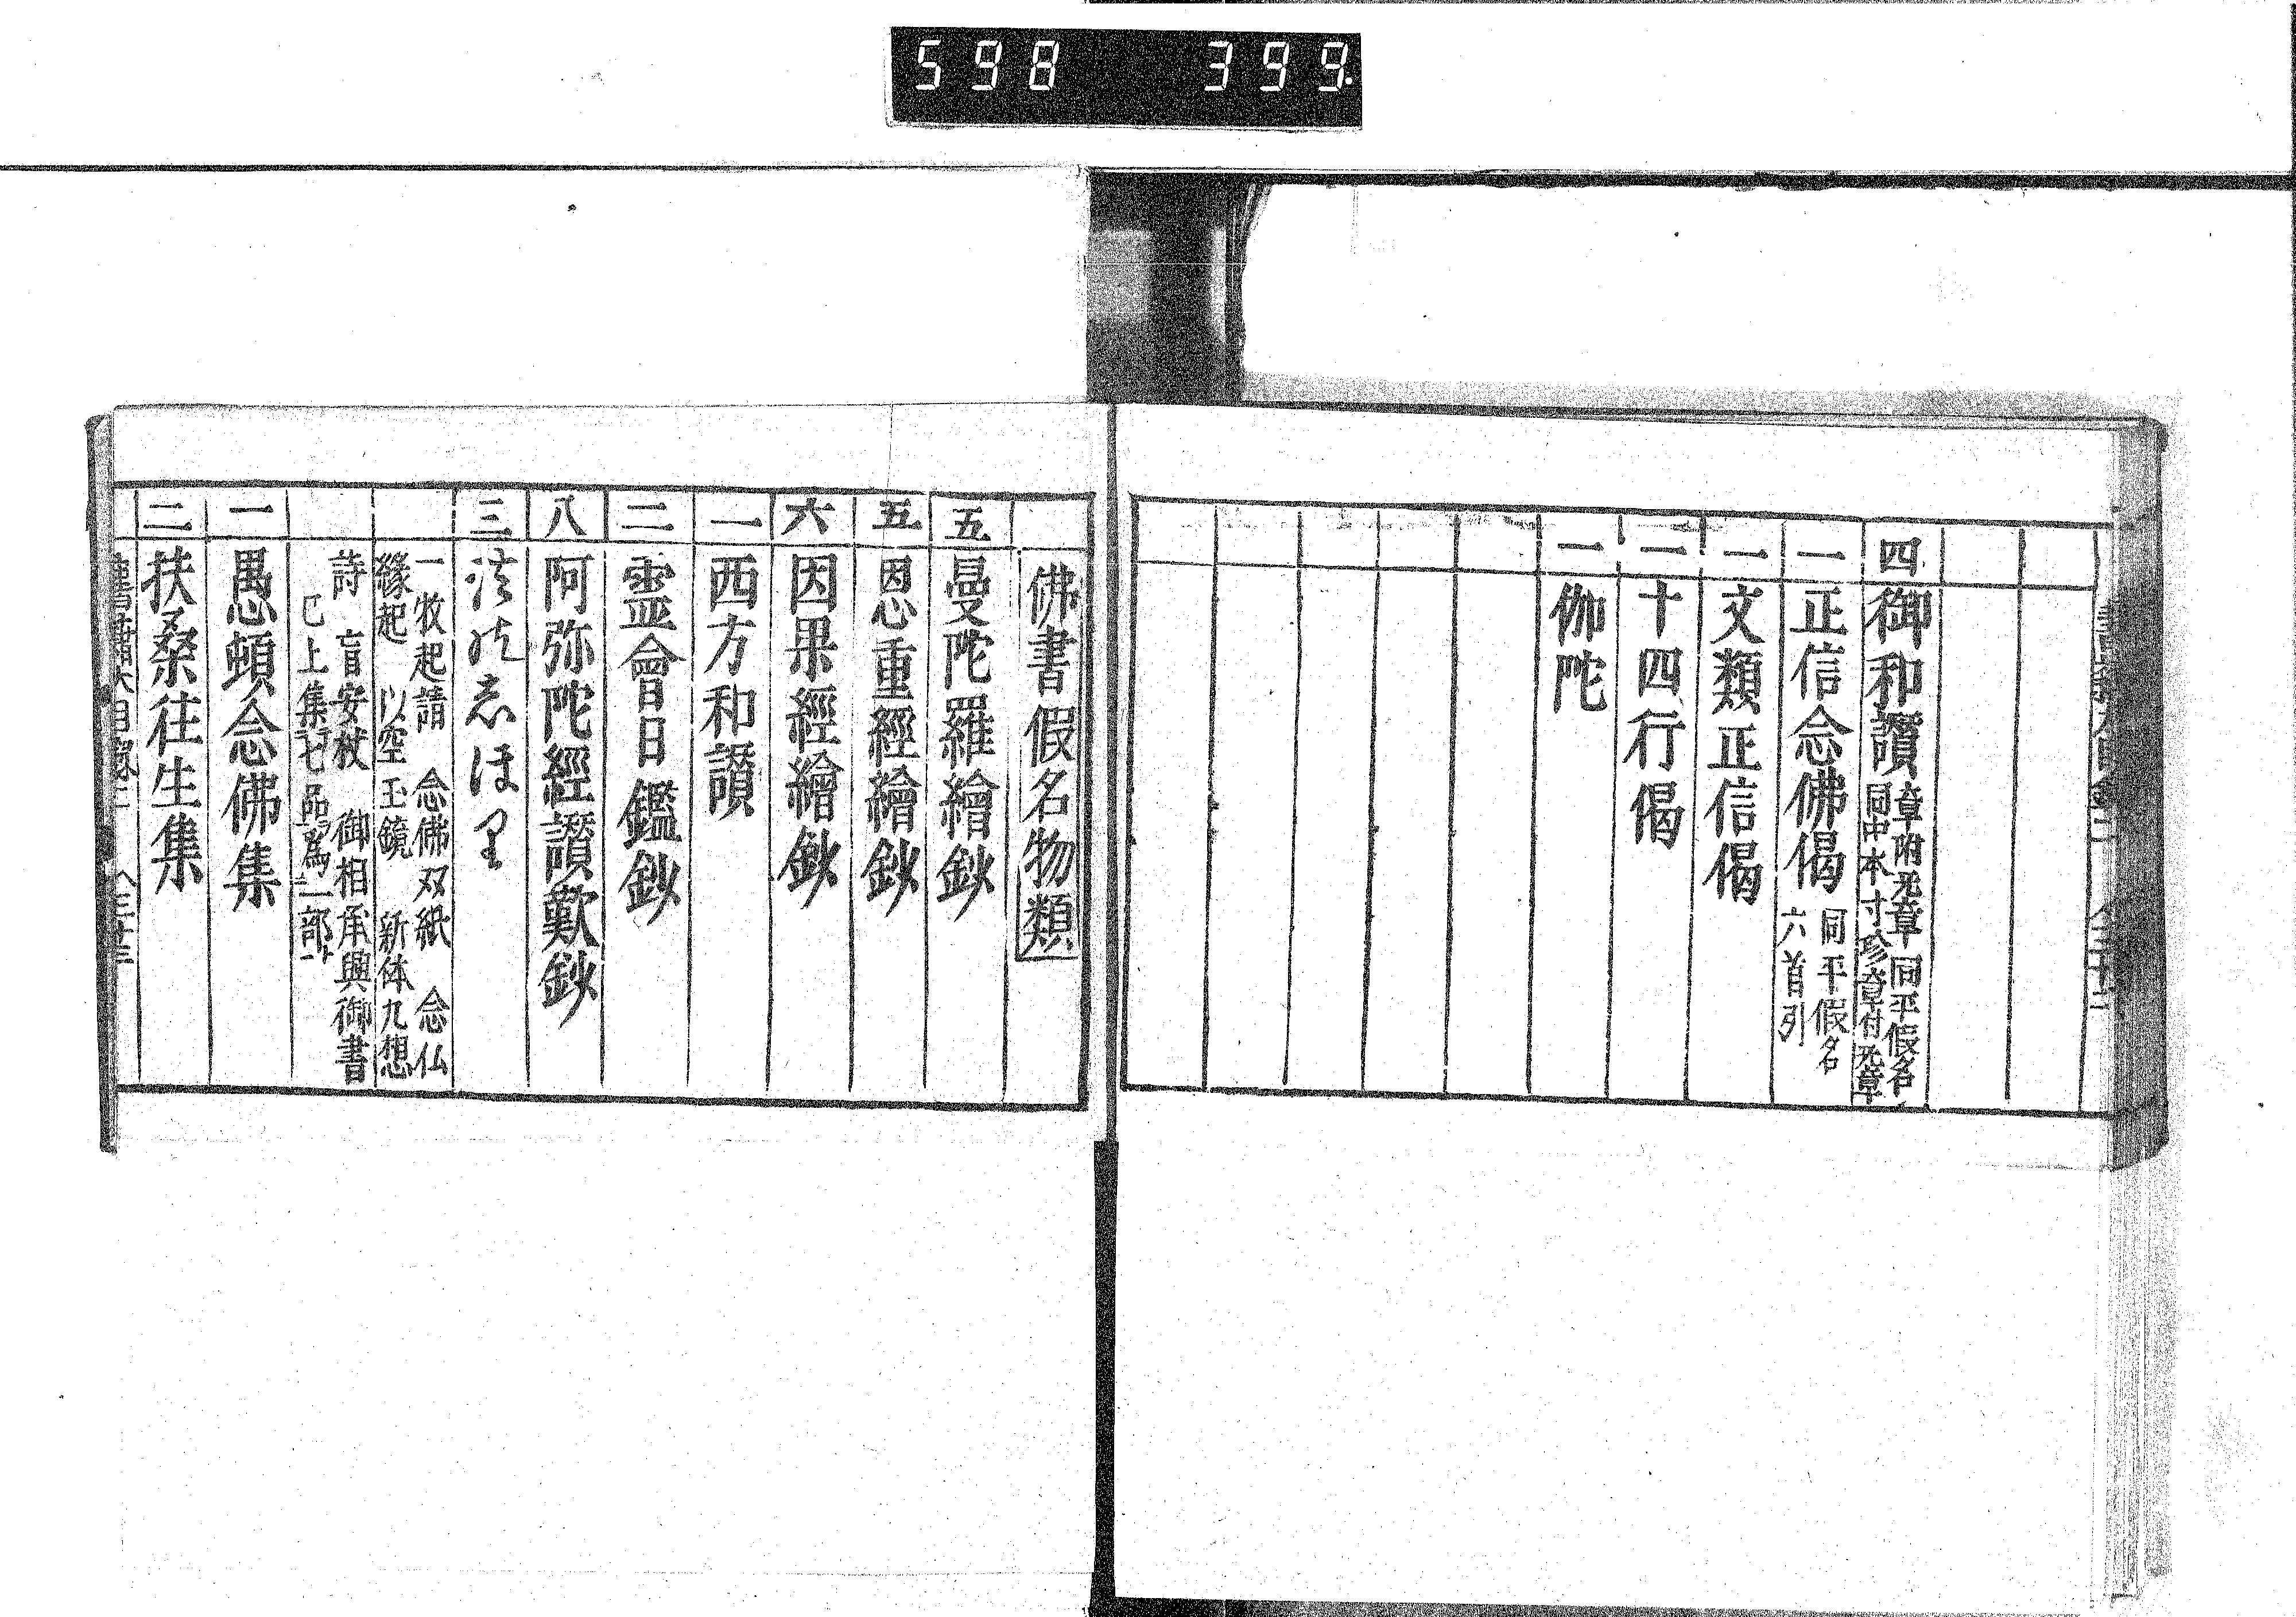 598 399.
四 御和讃 章附无章 同平假名
同中本 寸珍章付无章
一 正信念佛偈 同平假名
六首列
一 文類正信偈
一 十四行偈
一 伽陀
佛書假名物類
五 曼陀羅繪鈔
五 恩重經繪鈔
六 因果經繪鈔
一 西方和讃
二 霊會日日鑑鈔
八 阿弥陀經讃歎鈔
三 法のしほり
一 枚起請 念佛双紙 念仏
縁起 以空玉鏡 新体九想
詩 盲安杖 御相承興御書
已上集七品爲一部
一 愚頓念佛集
二 扶桑往生集